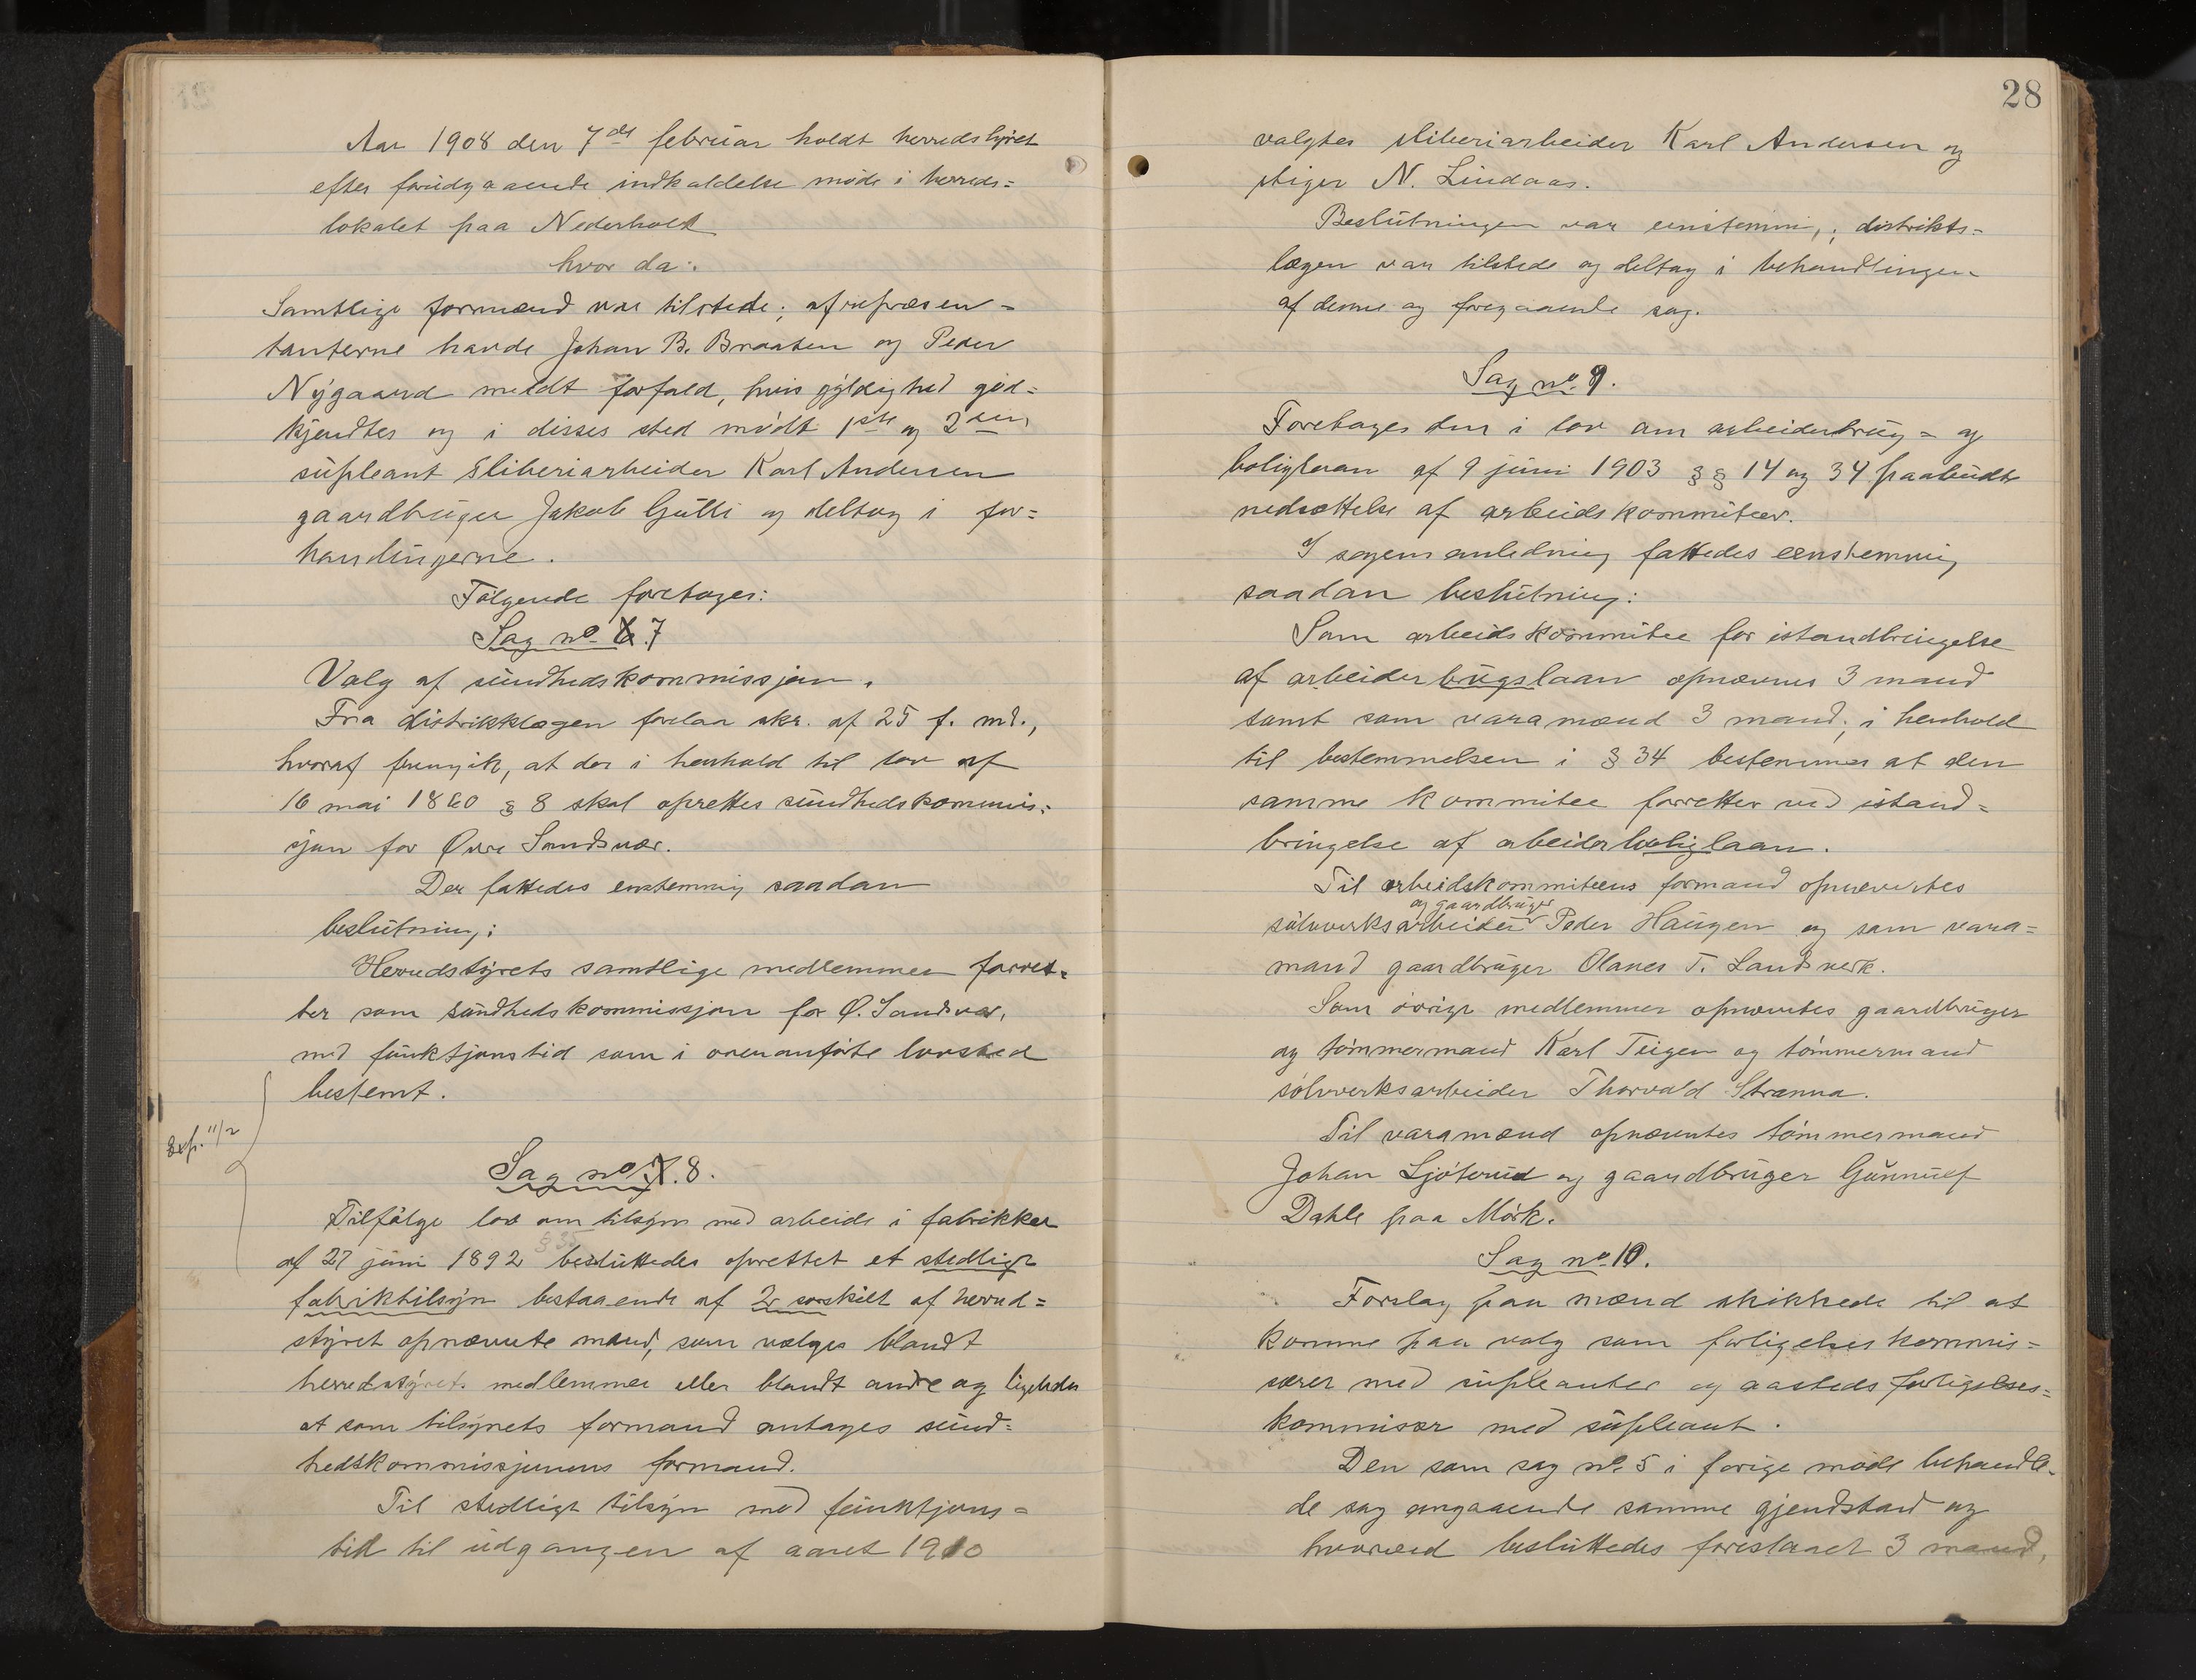 Aar 1908 den 7de februar holdt herredstyret
efter forudgaaende indkaldelse møde i herreds=
lokalet paa Nederholt
hvor da:
Samtlige formænd var tilstede; af repræsen=
tanterne havde Johan B. Braaten og Peder
Nygaard meldt forfald, hvis gyldighed god=
kjendtes og i disses sted mødte 1ste og 2den
supleant sliberiarbeider Karl Andersen
gaardbruger Jakob Gulli og deltog i for=
handlingerne.
Følgende foretoges:
Sag no. 7
Valg af sundhedskommissjon.
Fra distriktslægen forelaa skr. af 25 f. md.,
hvoraf fremgik, at der i henhold til lov af
16 mai 1860 § 8 skal oprettes sundhedskommis=
sjon for Øvre Sandsvær.
Der fattedes enstemmig saadan
beslutning:
Herredstyrets samtlige medlemmer forret=
ter som sundhedskommissjon for Ø. Sandsvær,
med funktjonstid som i ovenanførte lovsted
bestemt.
Exp. 11/2
Sag no 8.
Tilfølge lov om tilsyn med arbeide i fabrikker
§ 35
af 27 juni 1892 besluttedes oprettet et stedligt
fabriktilsyn bestaaende af 2 særskilt af herred=
styret opnævnte mænd, som vælges blandt
herredstyrets medlemmer eller blandt andre og ligeledes
at som tilsynets formand antages sund=
hedskommissjonens formand.
Til stedligt tilsyn med funktjons=
tid til udgangen af aaret 1910
28
valgtes sliberiarbeider Karl Andersen og
stiger N. Lindaas.
Beslutningen var enstemmig; distrikts=
lægen var tilstede og deltog i behandlingen
af denne og foregaaende sag.
Sag no. 9.
Foretoges den i lov om arbeiderbrug= og
boliglaan af 9 juni 1903 §§ 14 og 34 paabudte
nedsættelse af arbeidskommiteer.
I sagens anledning fattedes eenstemmig
saadan beslutning:
Som arbeidskommitee for istandbringelse
af arbeiderbrugslaan opnævnes 3 mænd
samt som varamænd 3 mænd; i henhold
til bestemmelsen i § 34 bestemmes at den
samme kommitee forretter ved istand=
bringelse af arbeiderboliglaan.
Til arbeidskommiteens formand opnævntes
og gaardbruger
sølvverksarbeider Peder Haugen og som vara=
mand gaardbruger Olanes T. Landsverk.
Som øvrige medlemmer opnævntes gaardbruger
og tømmermand Karl Teigen og tømmermand
sølvverksarbeider Thorvald Stranna.
Til varamænd opnævntes tømmermand
Johan Ljøterud og gaardbruger Gunnulf
Dahle paa Mørk.
Sag no. 10.
Forslag paa mænd skikkede til at
komme paa valg som forligelseskommis=
særer med supleanter og aasteds forligelses=
kommisær med supleant.
Den som sag no. 5 i forige møde behandle=
de sag angaaende samme gjendstand og
hvorved besluttedes foreslaaet 3 mænd,